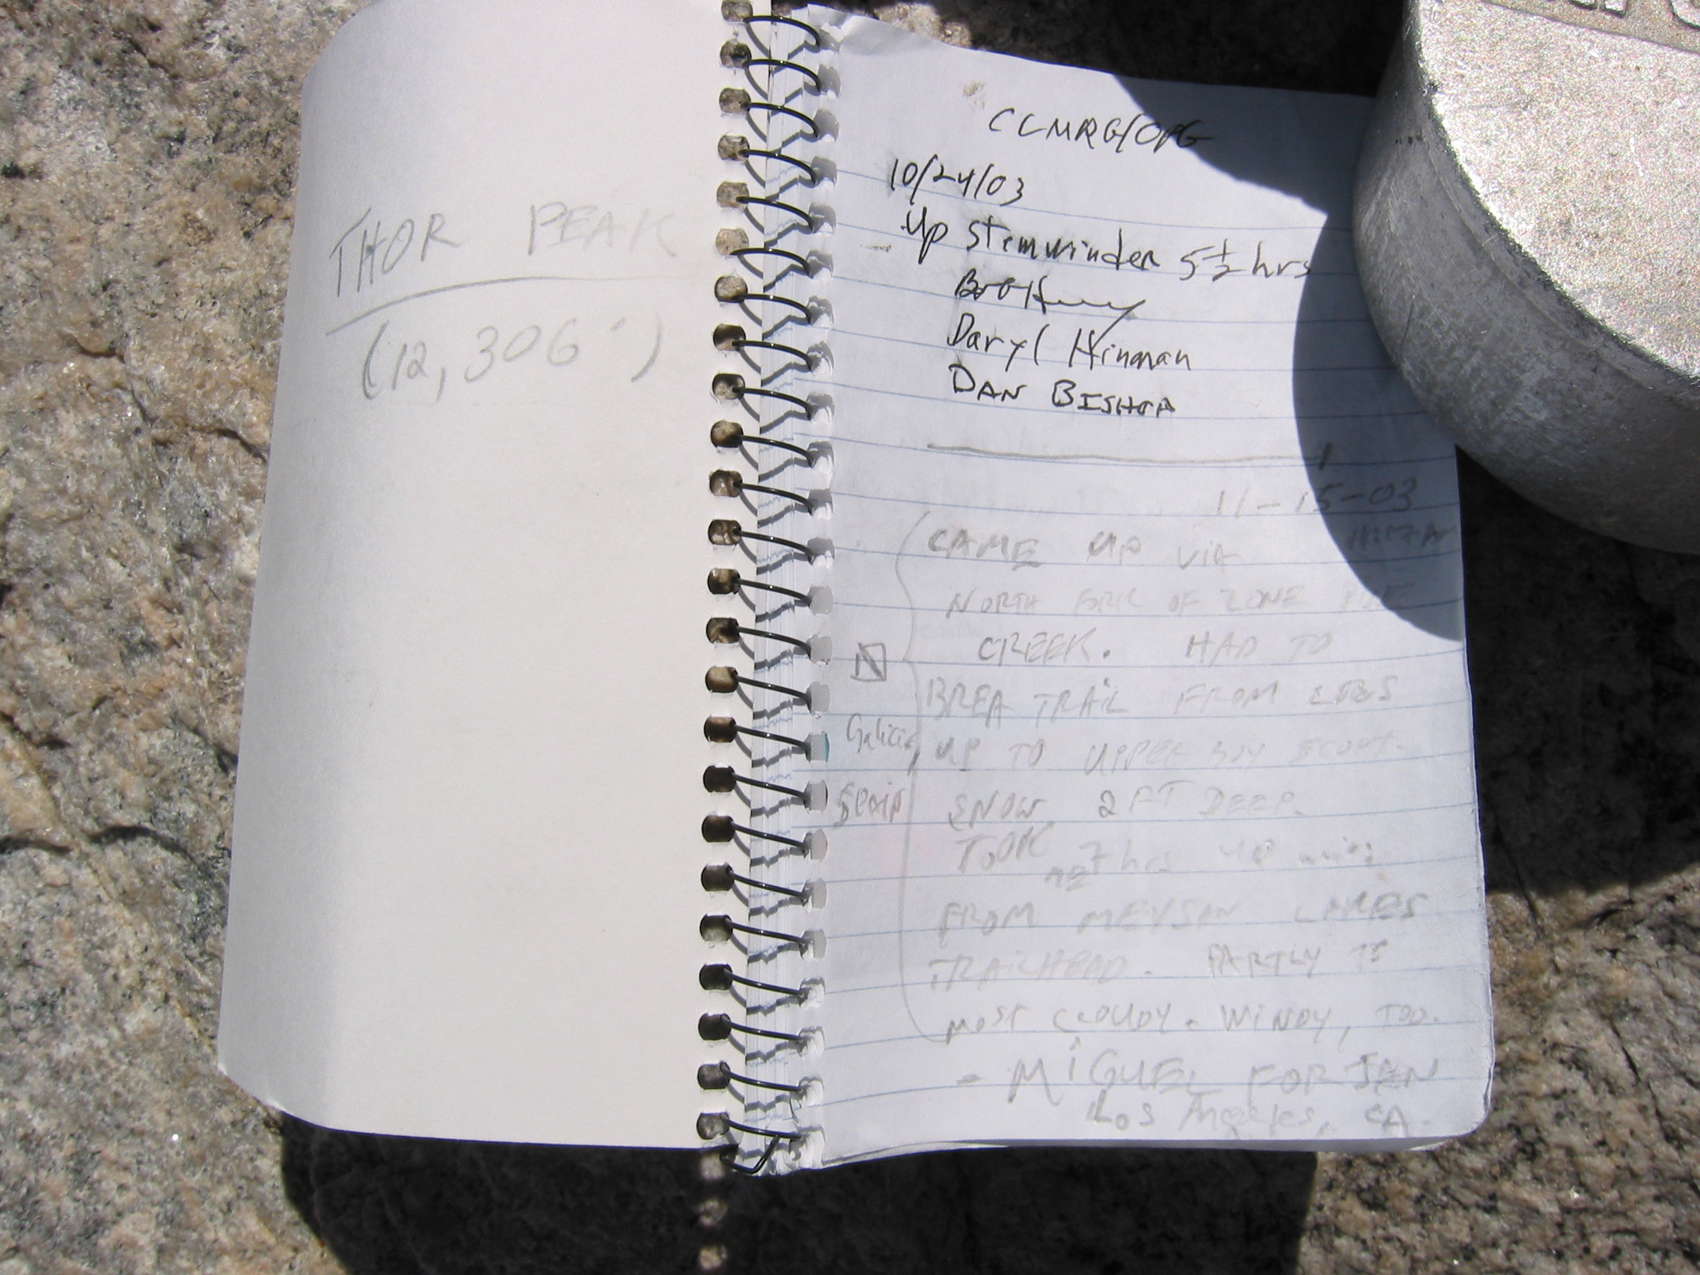 THOR PEAK
(12,306')
10/24/03
Up Stemwinder 5 1/2 hrs
Daryl Hinman
DAN BISHOP
11-15-03
CAME UP VIA
NORTH FORK OF LONE PINE
CREEK. HAD TO
BREA TRAIL FROM
UP TO UPPER BOY SCOUT.
SNOW 2 FT DEEP.
TOOK ME 7 hrs 40 min
FROM MEYSAN LAKES
TRAILHEAD. PARTLY TO
MOST CLOUDY. WINDY, TOO.
- MIGUEL FORJAN
Los Angeles, CA.
N
Galicia,
Spain